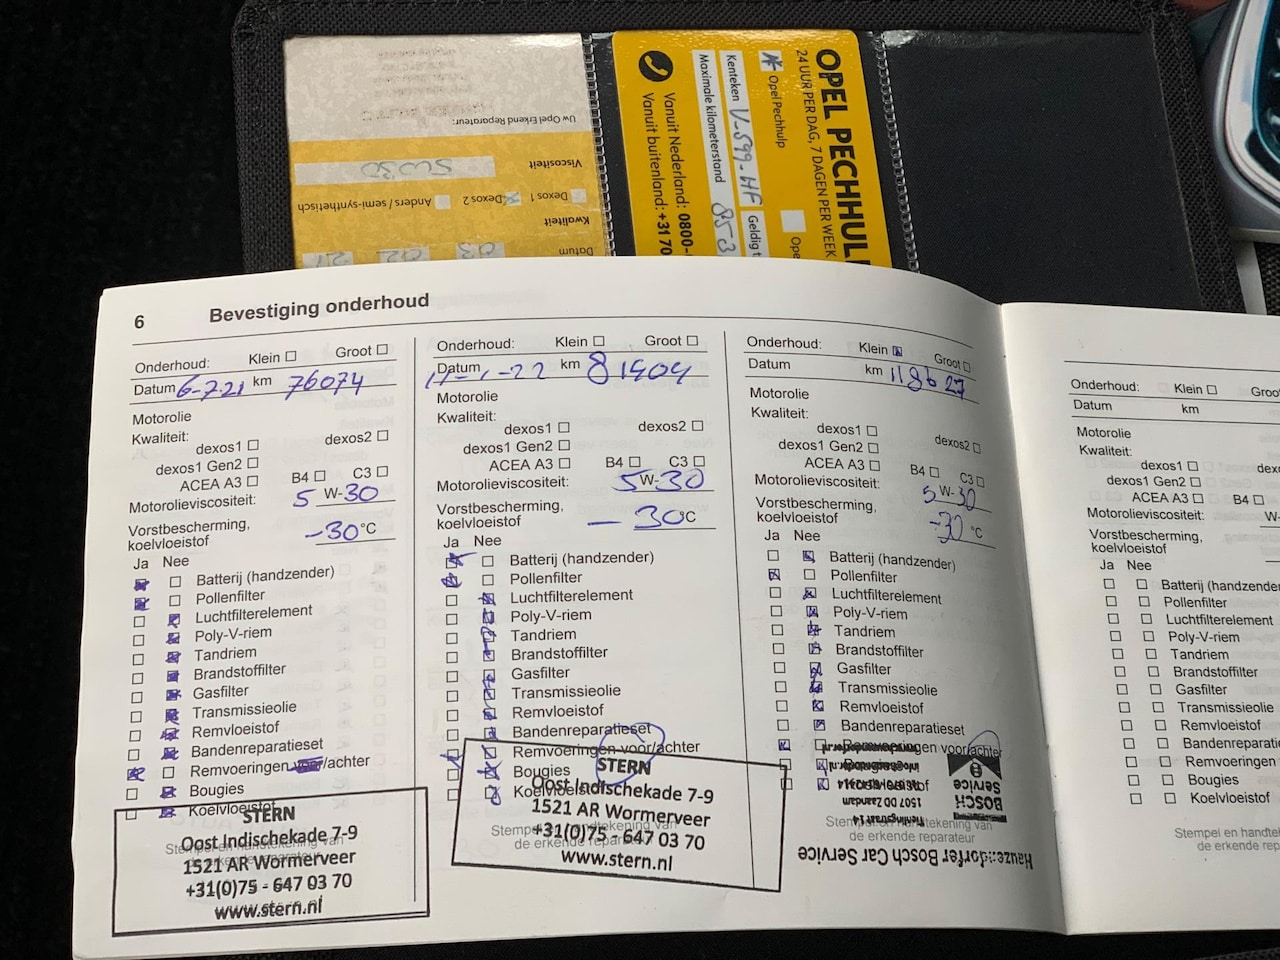 Uw Opel Erkend Reparateur:
Viscositeit
5W30
Dexos 1 Dexos 2 Anders / semi-synthetisch
Kwaliteit
Datum
OPEL PECHHUL
24 UUR PER DAG, 7 DAGEN PER WEEK
Opel Pechhulp
Kenteken V-599-HF Geldig t
Maximale kilometerstand 853
Vanuit Nederland: 0800-
Vanuit buitenland: +31 70
6 Bevestiging onderhoud
Onderhoud: Klein Groot
Datum 6-7-21 km 76074
Motorolie
Kwaliteit:
dexos1 dexos2
dexos1 Gen2
ACEA A3 B4 C3
Motorolieviscositeit: 5 W-30
Vorstbescherming,
koelvloeistof -30 °C
Ja Nee
Batterij (handzender)
Pollenfilter
Luchtfilterelement
Poly-V-riem
Tandriem
Brandstoffilter
Gasfilter
Transmissieolie
Remvloeistof
Bandenreparatieset
Remvoeringen voor/achter
Bougies
Koelvloeistof
Stempel en handtekening van
de erkende reparateur
STERN
Oost Indischekade 7-9
1521 AR Wormerveer
+31(0)75 - 647 03 70
www.stern.nl
Onderhoud: Klein Groot
Datum 11-1-22 km 81404
Motorolie
Kwaliteit:
dexos1 dexos2
dexos1 Gen2
ACEA A3 B4 C3
Motorolieviscositeit: 5 W-30
Vorstbescherming,
koelvloeistof -30 °C
Ja Nee
Batterij (handzender)
Pollenfilter
Luchtfilterelement
Poly-V-riem
Tandriem
Brandstoffilter
Gasfilter
Transmissieolie
Remvloeistof
Bandenreparatieset
Remvoeringen voor/achter
Bougies
Koelvloeistof
Stempel en handtekening van
de erkende reparateur
STERN
Oost Indischekade 7-9
1521 AR Wormerveer
+31(0)75 - 647 03 70
www.stern.nl
Onderhoud: Klein Groot
Datum km 118627
Motorolie
Kwaliteit:
dexos1 dexos2
dexos1 Gen2
ACEA A3 B4 C3
Motorolieviscositeit: 5 W-30
Vorstbescherming,
koelvloeistof -30 °C
Ja Nee
Batterij (handzender)
Pollenfilter
Luchtfilterelement
Poly-V-riem
Tandriem
Brandstoffilter
Gasfilter
Transmissieolie
Remvloeistof
Bandenreparatieset
Remvoeringen voor/achter
Stempel en handtekening van
de erkende reparateur
Bosch Car Service
BOSCH
Service
1507 DD Zaandam
Onderhoud: Klein Groot
Datum km
Motorolie
Kwaliteit:
dexos1
dexos1 Gen2
ACEA A3 B4
Motorolieviscositeit: W-
Vorstbescherming,
koelvloeistof
Ja Nee
Batterij (handzender
Pollenfilter
Luchtfilterelement
Poly-V-riem
Tandriem
Brandstoffilter
Gasfilter
Transmissieolie
Remvloeistof
Bandenreparatie
Remvoeringen
Bougies
Koelvloeistof
Stempel en handte
de erkende rep